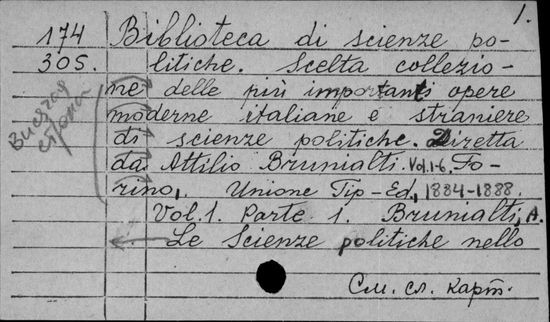 1.
174 Biblioteca di scienze po-
305. litiche. Scelta collezio-
ne delle più importanti opere
moderne italiane e straniere
di scienze politiche. Diretta
da Attilio Brunialti. Vol. 1-6, To-
rino, Unione Tip-Ed., 1884-1888.
Vol. 1. Parte 1. Brunialti, A.
Le Scienze politiche nello
См. сл. карт.
Висячая
строка